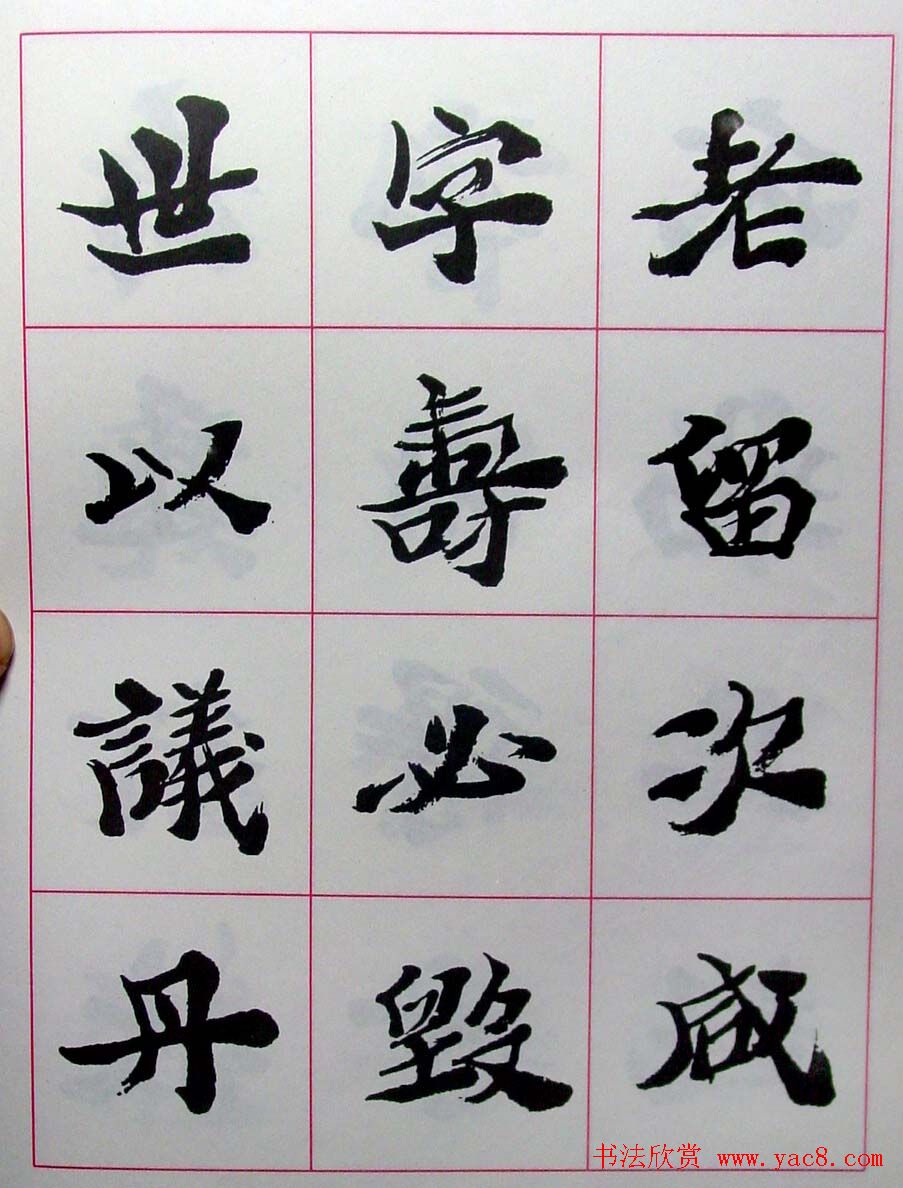 老留次咸
字壽必毀
世以議丹
书法欣赏 www.yac8.com